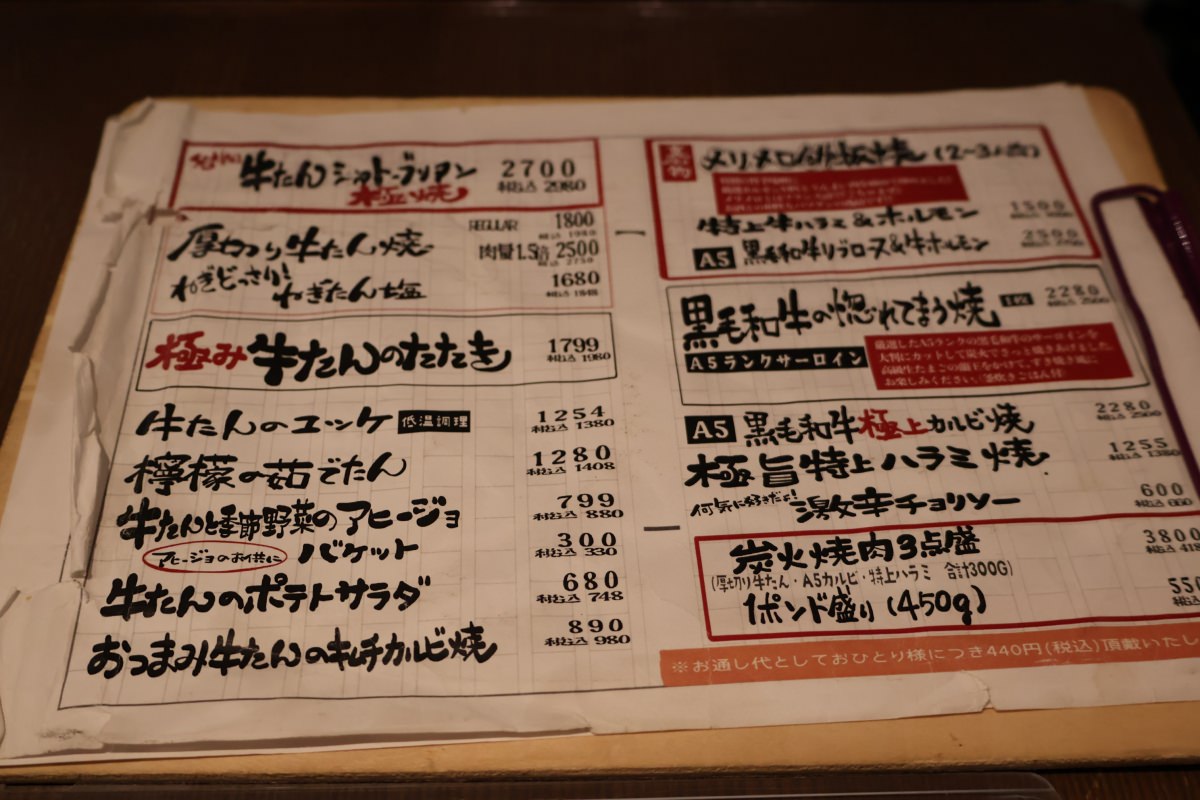 牛たんシャトーブリアン 2700
極焼 税込 2980
厚切り牛たん焼 REGULAR 1800
税込 1980
肉量1.5倍 2500
税込 2750
ねぎどっさり! ねぎたん塩 1680
税込 1848
極み 牛たんのたたき 1799
税込 1980
牛たんのユッケ 低温調理 1254
税込 1380
檸檬の茹でたん 1280
税込 1408
牛たんと季節野菜のアヒージョ 799
税込 880
アヒージョのお供に バケット 300
税込 330
牛たんのポテトサラダ 680
税込 748
おつまみ牛たんのキムチカルビ焼 890
税込 980
名物 メリメロ鉄板焼 (2〜3人前)
牛特上牛ハラミ&ホルモン 1500
A5 黒毛和牛リブロース&牛ホルモン 2500
黒毛和牛の惚れてまう焼 1枚 2280
税込 2500
A5ランクサーロイン
厳選したA5ランクの黒毛和牛のサーロインを
大判にカットして炭火で
高級生たまごの
お楽しみください
A5 黒毛和牛極上カルビ焼 2280
税込 2500
極旨特上ハラミ焼 1255
税込 1380
何気に好きだよ! 激辛チョリソー 600
税込 660
炭火焼肉3点盛 3800
税込 418
(厚切り牛たん・A5カルビ・特上ハラミ 合計300G)
1ポンド盛り(450g) 550
税込
※お通し代としておひとり様につき440円(税込)頂戴いたし